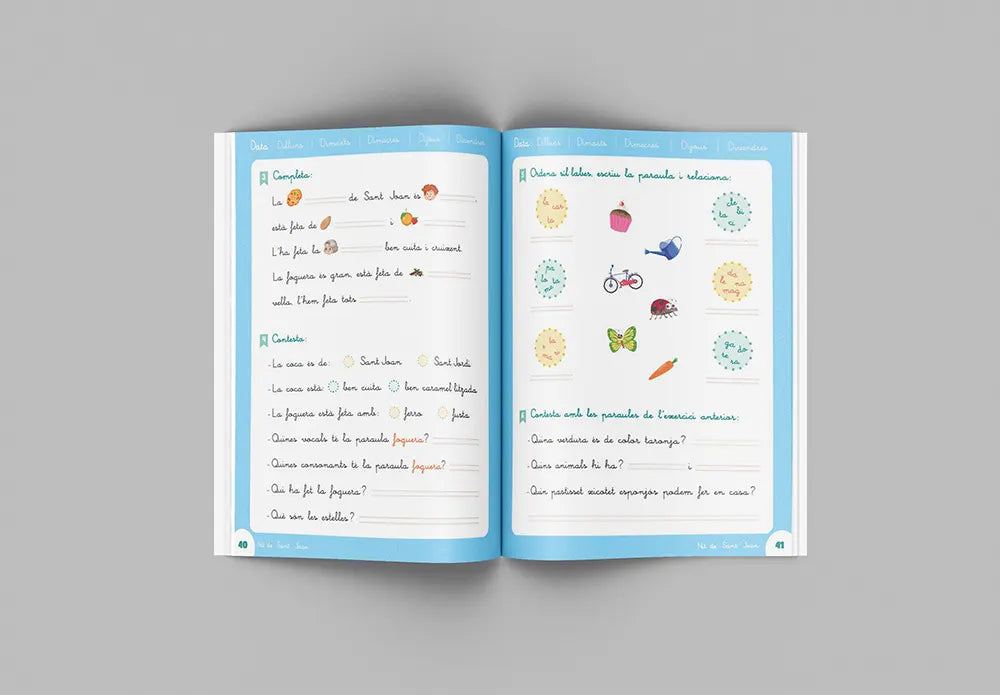 Data: Dilluns | Dimarts | Dimecres | Dijous | Divendres
3 Completa:
La de Sant Joan és .
està feta de i
L'ha feta la ben cuita i cruixent.
La foguera és gran, està feta de
vella, l'hem feta tots .
4 Contesta:
- La coca és de: Sant Joan Sant Jordi
- La coca està: ben cuita ben caramel·litzada
- La foguera està feta amb: ferro fusta
- Quines vocals té la paraula foguera?
- Quines consonants té la paraula foguera?
- Qui ha fet la foguera?
- Què són les estelles?
40 Nit de Sant Joan
Data: Dilluns | Dimarts | Dimecres | Dijous | Divendres
5 Ordena síl·labes, escriu la paraula i relaciona:
la cas
to
cle bi
ta ci
pa
lo ta
me
da
li na
maq
ta
i
ma ri
ga do
re ra
6 Contesta amb les paraules de l'exercici anterior:
- Quina verdura és de color taronja?
- Quins animals hi ha? i
- Quin pastisset xicotet esponjós podem fer en casa?
Nit de Sant Joan 41